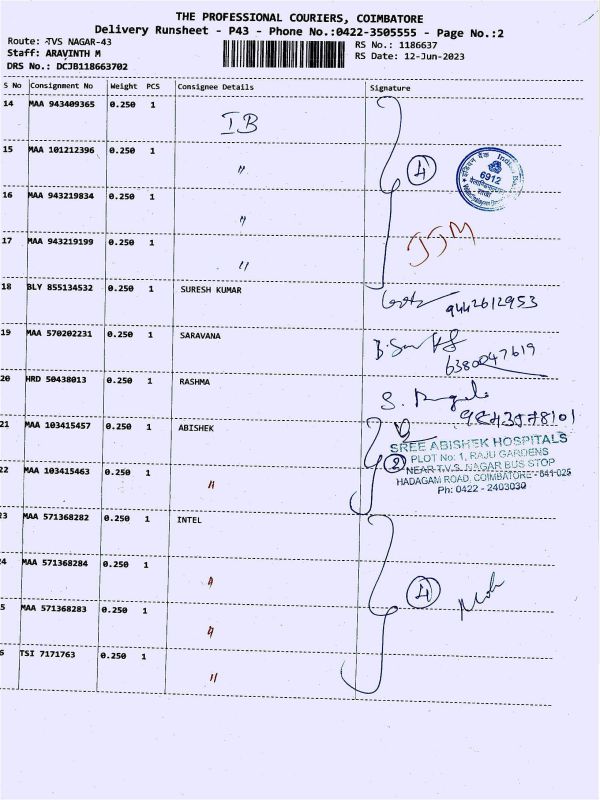 THE PROFESSIONAL COURIERS, COIMBATORE
Delivery Runsheet - P43 - Phone No.:0422-3505555 - Page No.:2
Route: TVS NAGAR-43
Staff: ARAVINTH M
DRS No.: DCJB118663702
RS No.: 1186637
RS Date: 12-Jun-2023
S No Consignment No Weight PCS Consignee Details Signature
14 MAA 943409365 0.250 1 IB
15 MAA 101212396 0.250 1 "
4
6912
16 MAA 943219834 0.250 1 "
17 MAA 943219199 0.250 1 "
18 BLY 855134532 0.250 1 SURESH KUMAR
9442612953
19 MAA 570202231 0.250 1 SARAVANA
6380047619
20 HRD 50438013 0.250 1 RASHMA
21 MAA 103415457 0.250 1 ABISHEK
SREE ABISHEK HOSPITALS
2 PLOT No: 1, RAJU GARDENS
NEAR T.V.S. NAGAR BUS STOP
HADAGAM ROAD, COIMBATORE - 641-025
Ph: 0422 - 2403030
22 MAA 103415463 0.250 1 "
23 MAA 571368282 0.250 1 INTEL
24 MAA 571368284 0.250 1 "
4
5 MAA 571368283 0.250 1 "
6 TSI 7171763 0.250 1 "